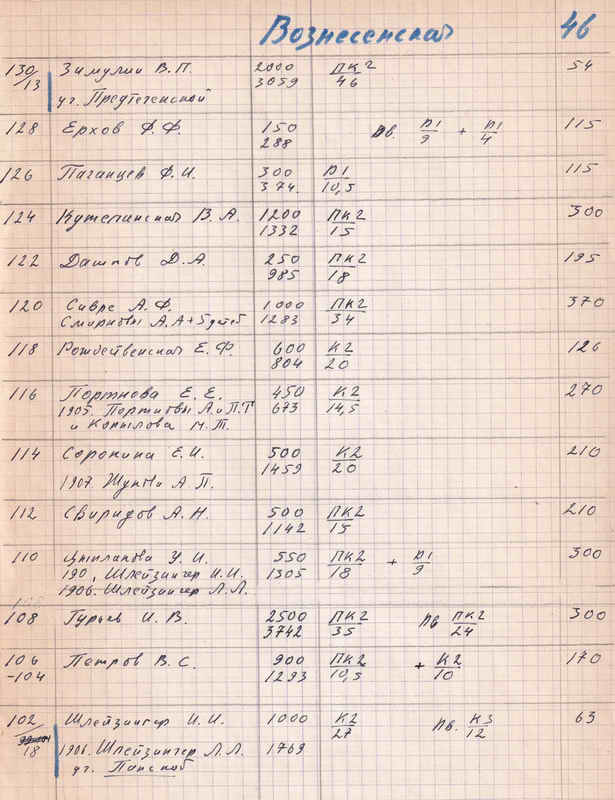 Вознесенская 46
130/13 Зимулин В.П. 2000 ПК2/46 54
3059
уг. Предтеченской
128 Ерхов Ф.Ф. 150 Дв. Д1/9 + Д1/4 115
288
126 Паганцев Ф.И. 300 Д1/10,5 115
374.
124 В.А. 1200 ПК2/15 300
1332
122 Дашков Д.А. 250 ПК2/18 195
985
120 Савре А.Ф. 1000 ПК2/34 370
Смирновы А.А + 5 детей 1283
118 Рождественская Е.Ф. 600 К2/20 126
804
116 Портнова Е.Е. 450 К2/14,5 270
1905. Портновы А. и П.Т 673
и Копылова М.Т.
114 Сорокина Е.И. 500 К2/20 210
1459
1907. А П.
112 Свиридов А.Н. 500 ПК2/15 210
1142
110 У.И. 550 ПК2/18 + Д1/9 300
190, Шлейзингер И.И. 1305
1906. Шлейзингер Л.Л.
108 Гурьев И.В. 2500 ПК2/35 Дв ПК2/24 300
3742
106 Петров В.С. 900 ПК2/10,5 + К2/10 170
-104 1293
102 Шлейзингер И.И. 1000 К2/27 Дв. К3/12 63
18 1906. Шлейзингер Л.Л. 1769
уг. Панской